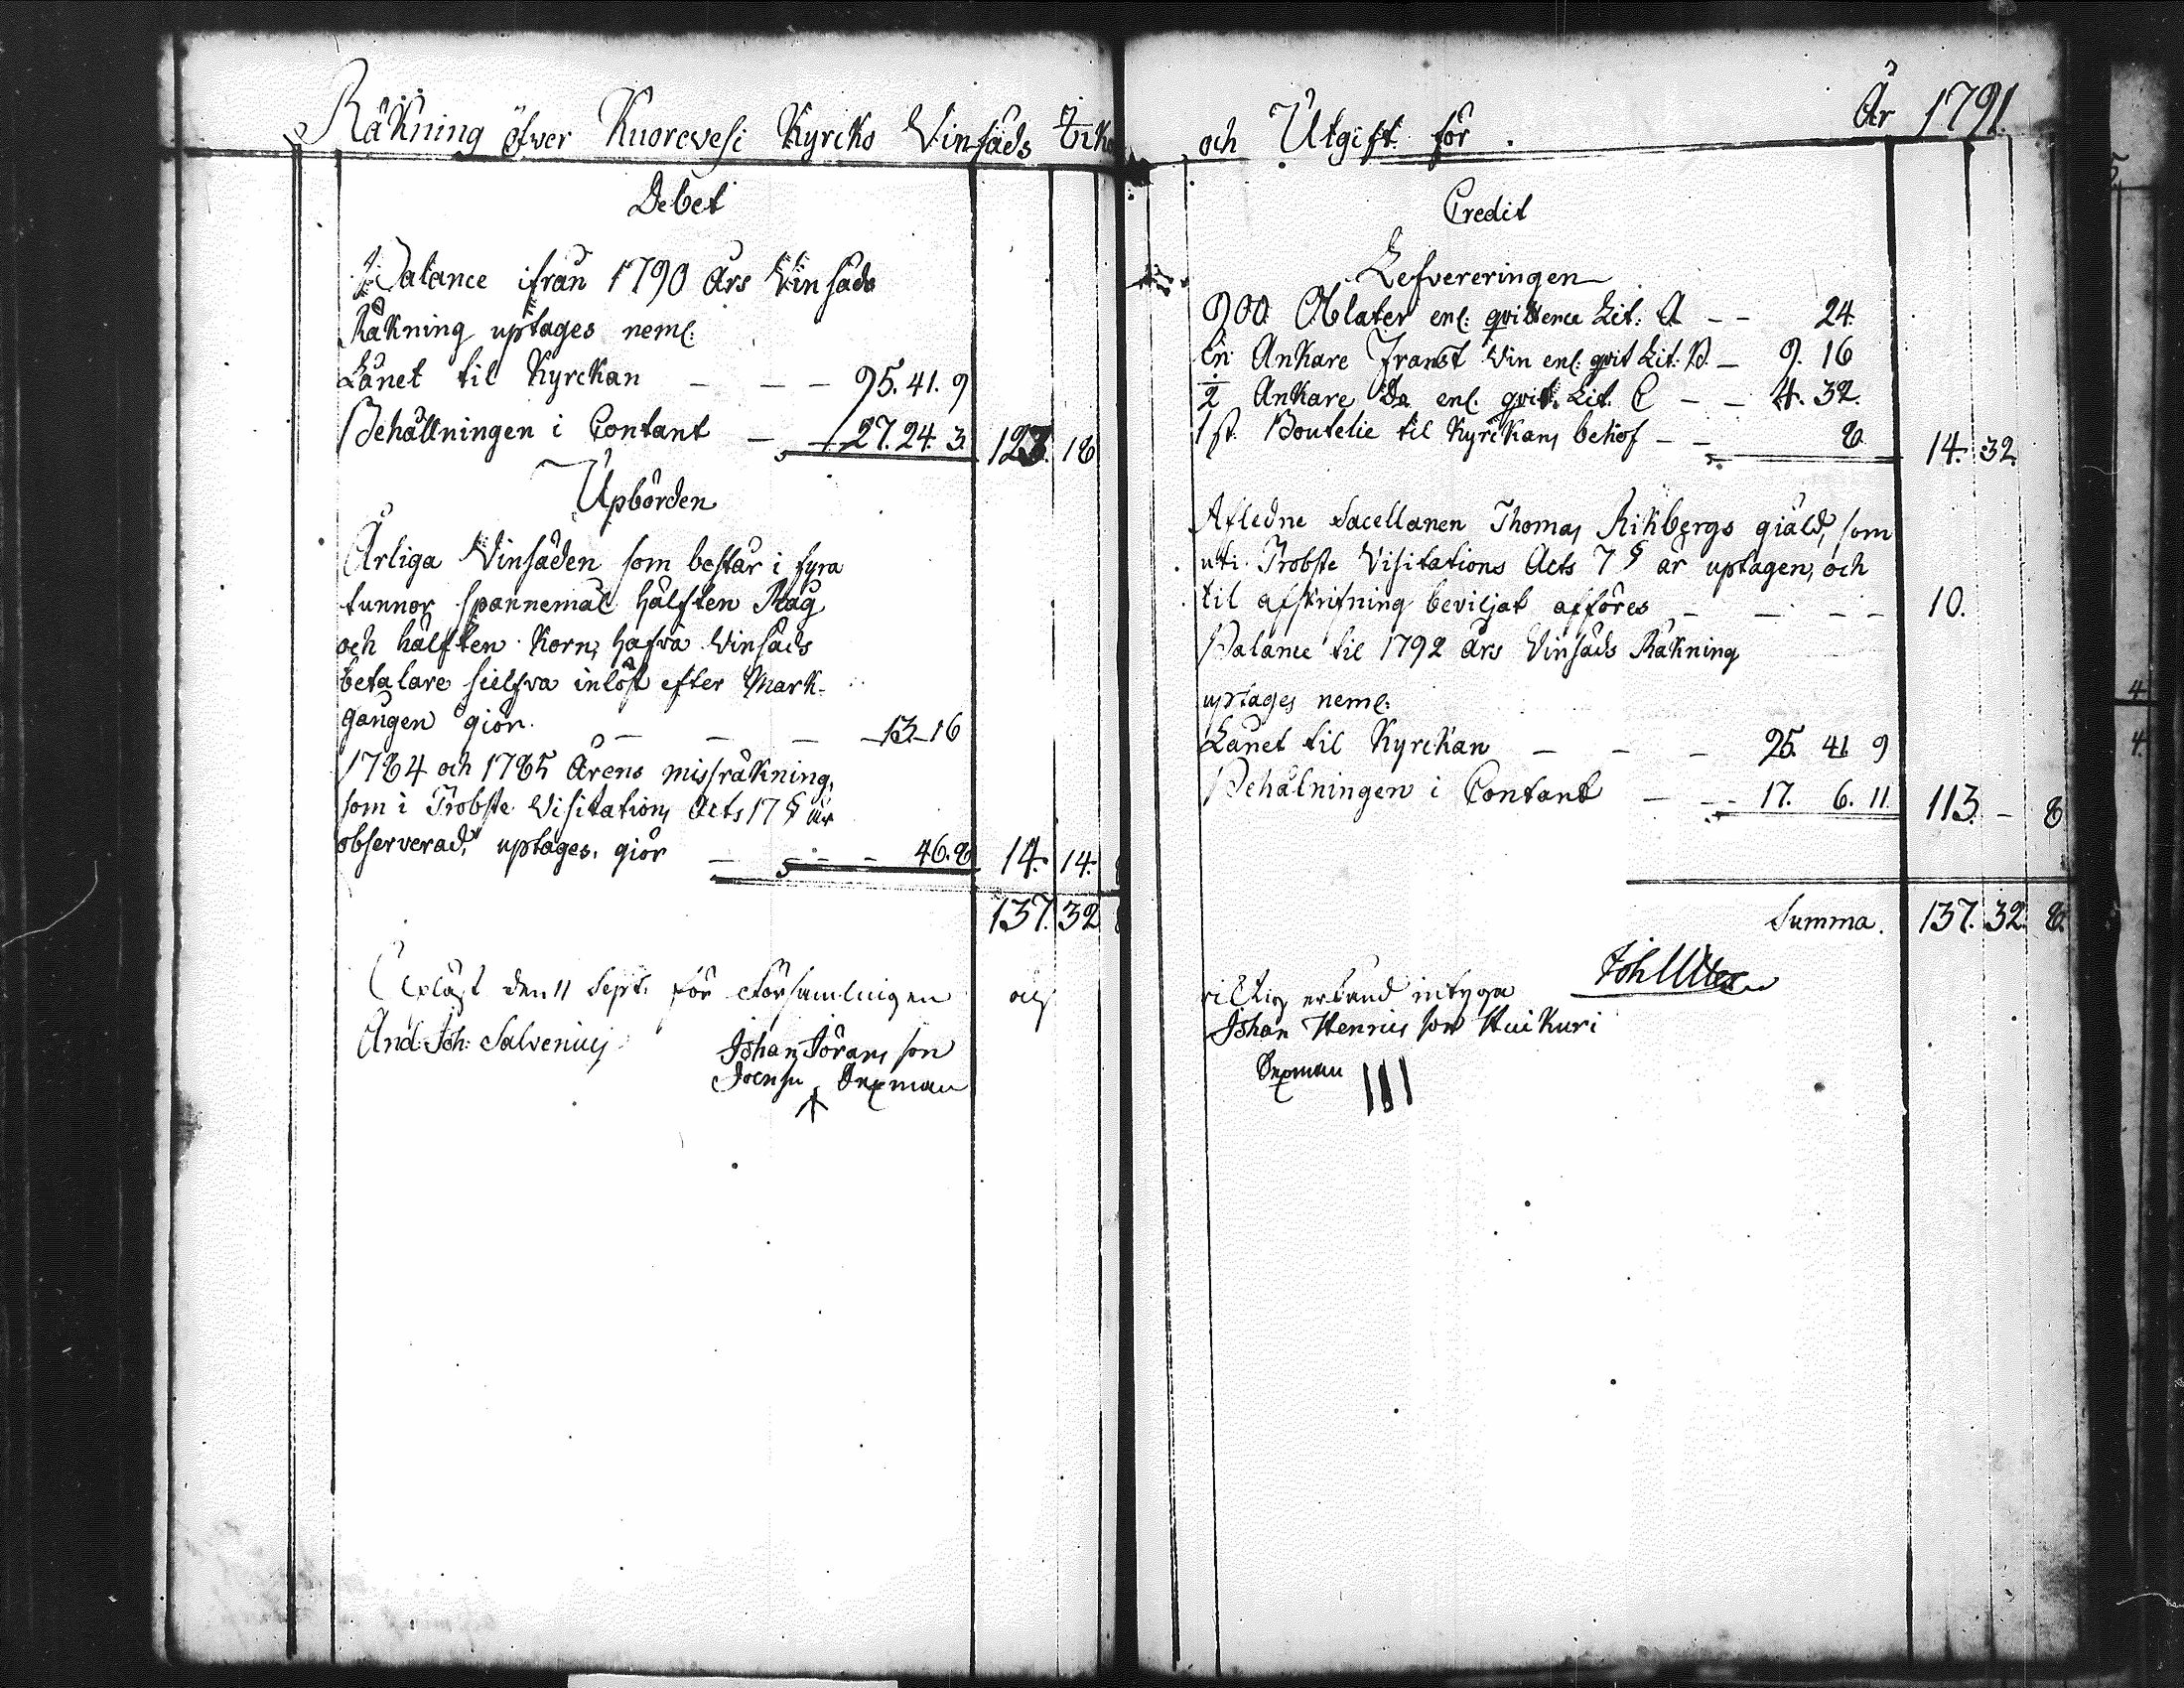 Räkning öfwer Kuorevesi Kyrcko Vinsäds
Debet
Balance ifrån 1790 års Vinsäds
Räkning uptages neml:
Lånet til Kyrckan — — — 95. 41. 9
Behållningen i Contant — — 27. 24. 3. 123. 18
Upbörden
Årliga Vinsäden som består i fyra
tunnor spannemål hälften Råg
och hälften Korn, hafva Vinsäds
betalare sielfva inlöst efter Mark-
gången giör. — — — 13. 16
1784 och 1785 Årens missräkning,
som i Probste Visitations Acts 17 § är
observerad, uptages, giör — — — 46. 8 14. 14.
137. 32
Upläst den 11 Sept. för Församlingen och
And: Joh: Salvenius
Johan Jörans son
Joensu Sexman
och Utgift för År 1791.
Credit
Lefvereringen
900 Oblater enl: qvittence Lit: A — — 24.
En Ankare Franst Vin enl: qvit Lit: B. — 9. 16
½ Ankare Do enl. qvit. Lit. C — — 4. 32.
1 st. Boutelie til Kyrckans behof — — 8 14. 32.
Afledne Sacellanen Thomas Rikbergs giäld, som
uti Probste Visitations Acts 7 § är uptagen, och
til afskrifning beviljat afföres — — — — 10.
Balance til 1792 års Vinsäds Räkning
uptages neml:
Lånet til Kyrckan — — — 95. 41. 9
Behålningen i Contant — — — 17. 6. 11. 113. — 8
Summa. 137. 32. 8.
richtig erkänd intyga
Johan Henrics son Huikuri
Sexman